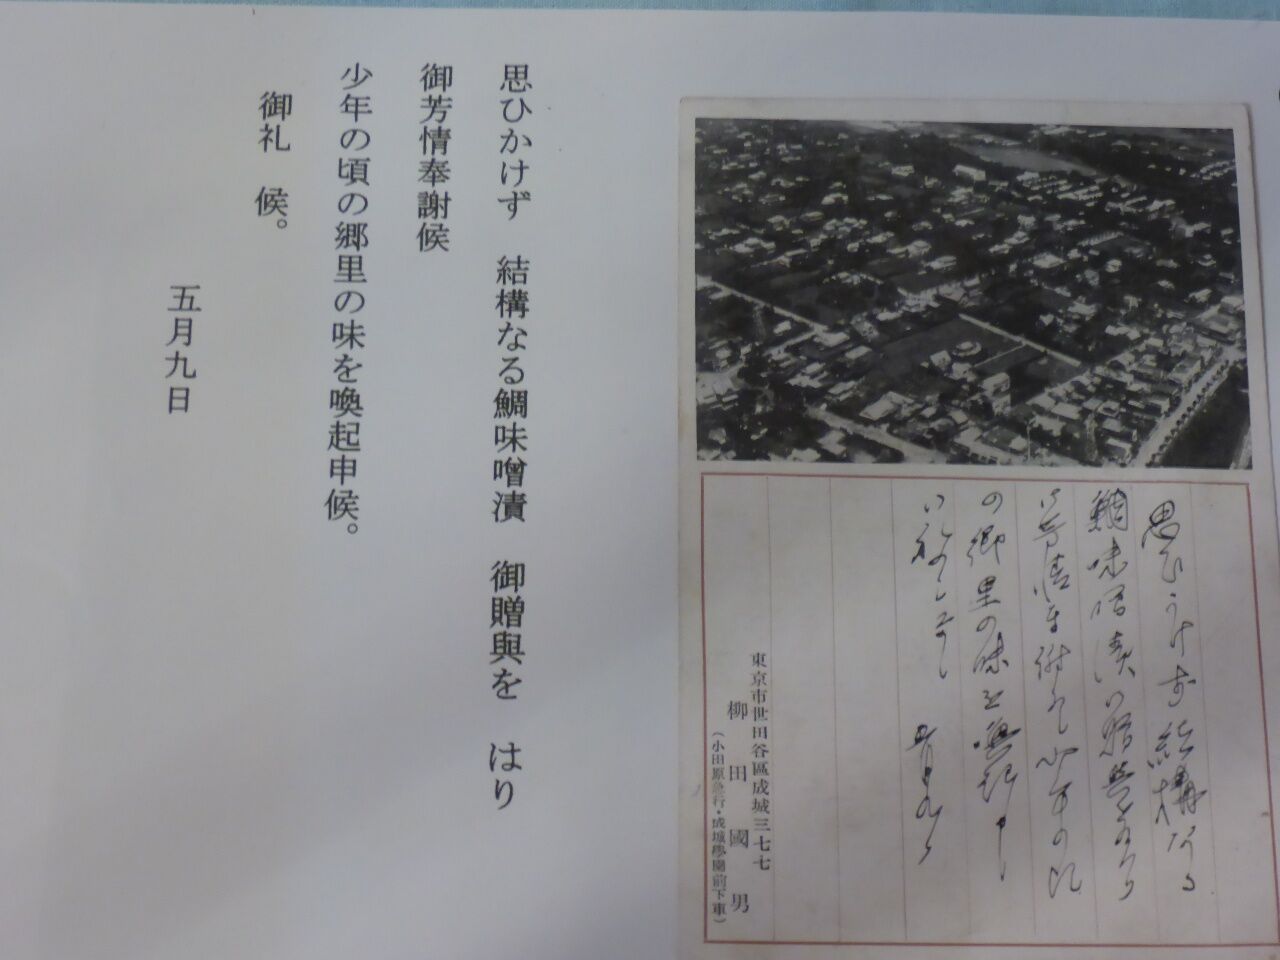 思ひうけず結構なる
鯛味噌漬御贈與をはり
御芳情奉謝候少年の頃
の郷里の味を喚起申候
御礼
五月九日
東京市世田谷區成城三七七
柳田國男
（小田原急行・成城學園前下車）
思ひかけず　結構なる鯛味噌漬　御贈與を　はり
御芳情奉謝候
少年の頃の郷里の味を喚起申候。
御礼　候。
五月九日